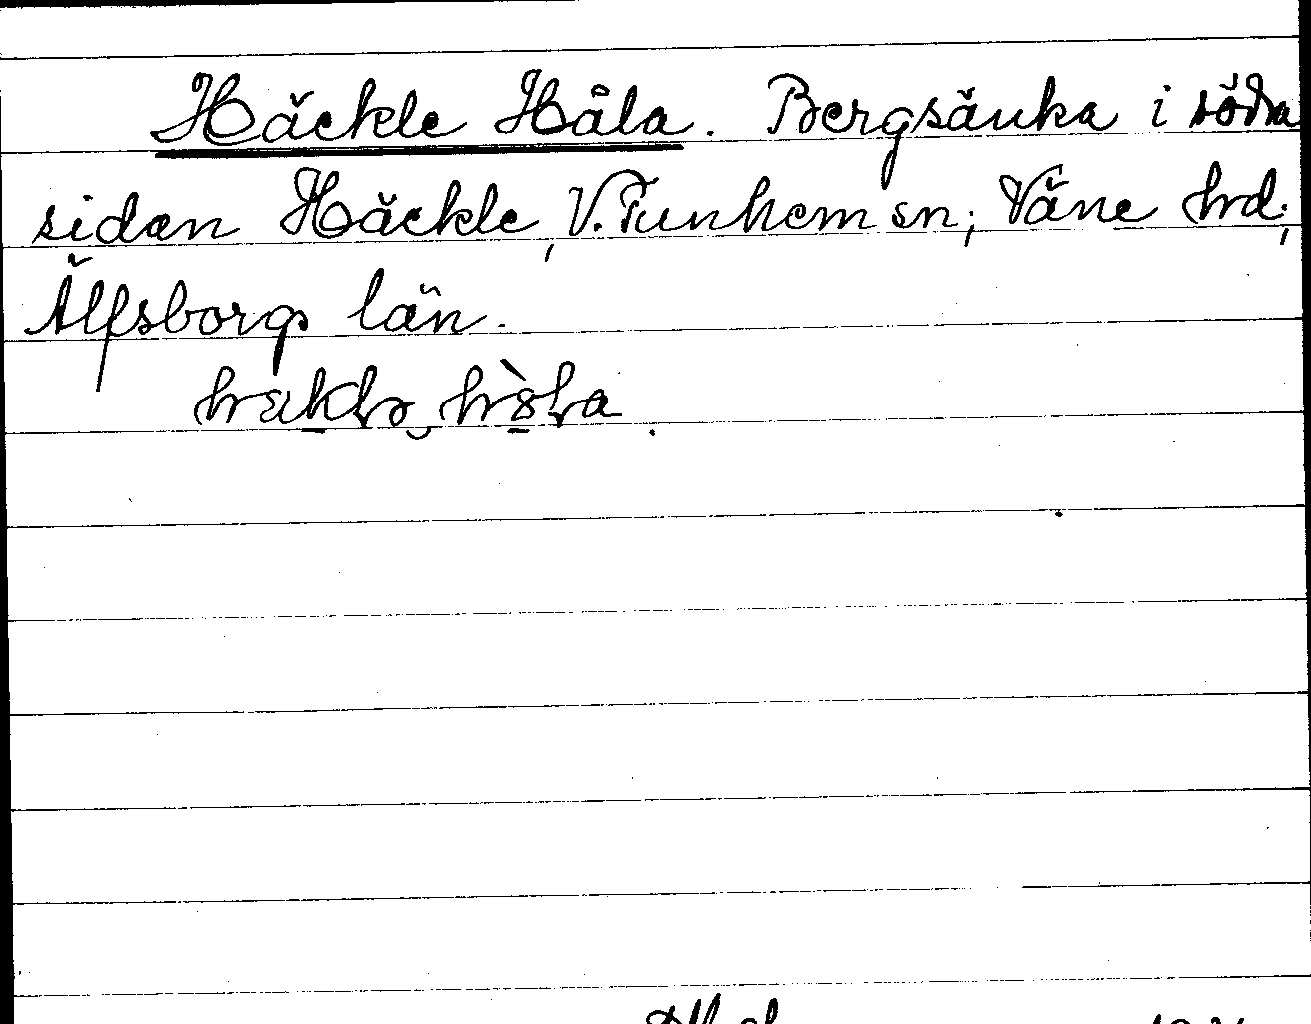 Häckle Håla. Bergsänka i södra
sidan Häckle, V. Tunhem sn; Väne hrd;
Älfsborgs län.